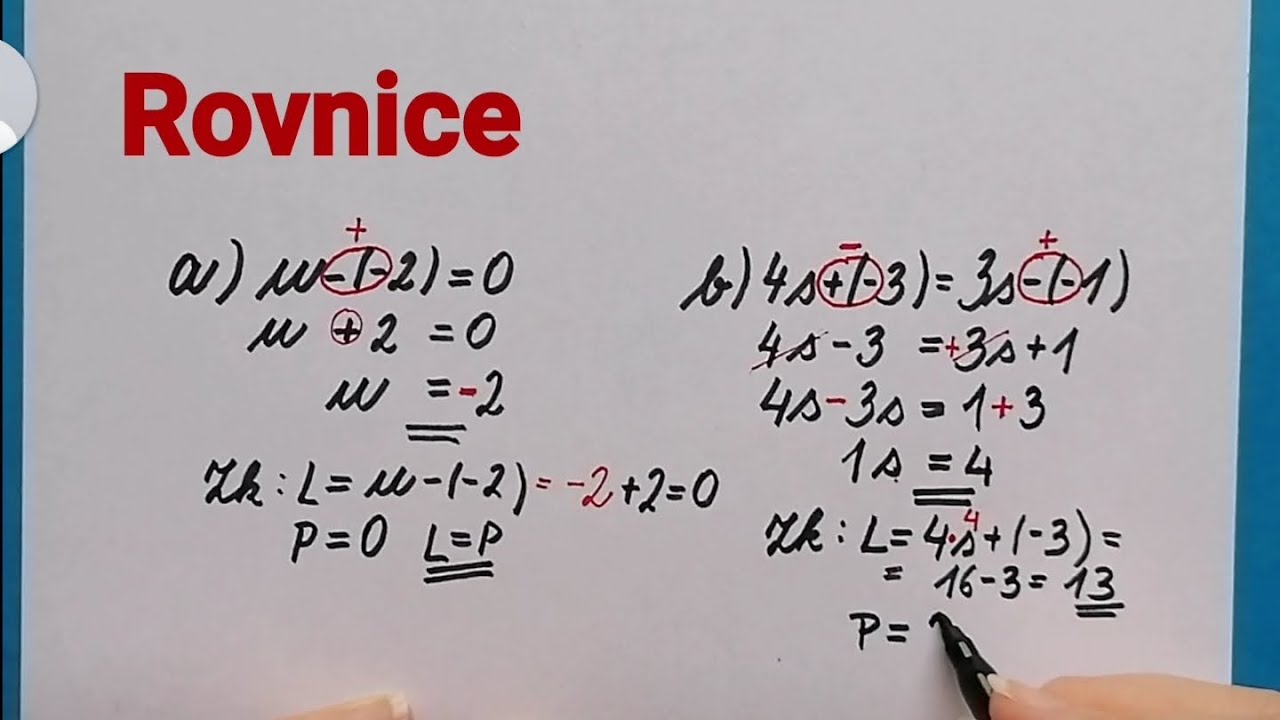 Rovnice
+
a) u-(-2)=0
u + 2 = 0
u = -2
Zk: L = u-(-2) = -2+2=0
P=0 L=P
- +
b) 4s+(-3)=3s-(-1)
4s-3 =+3s+1
4s-3s = 1+3
1s = 4
4
Zk: L= 4·s+(-3) =
= 16-3 = 13
P=